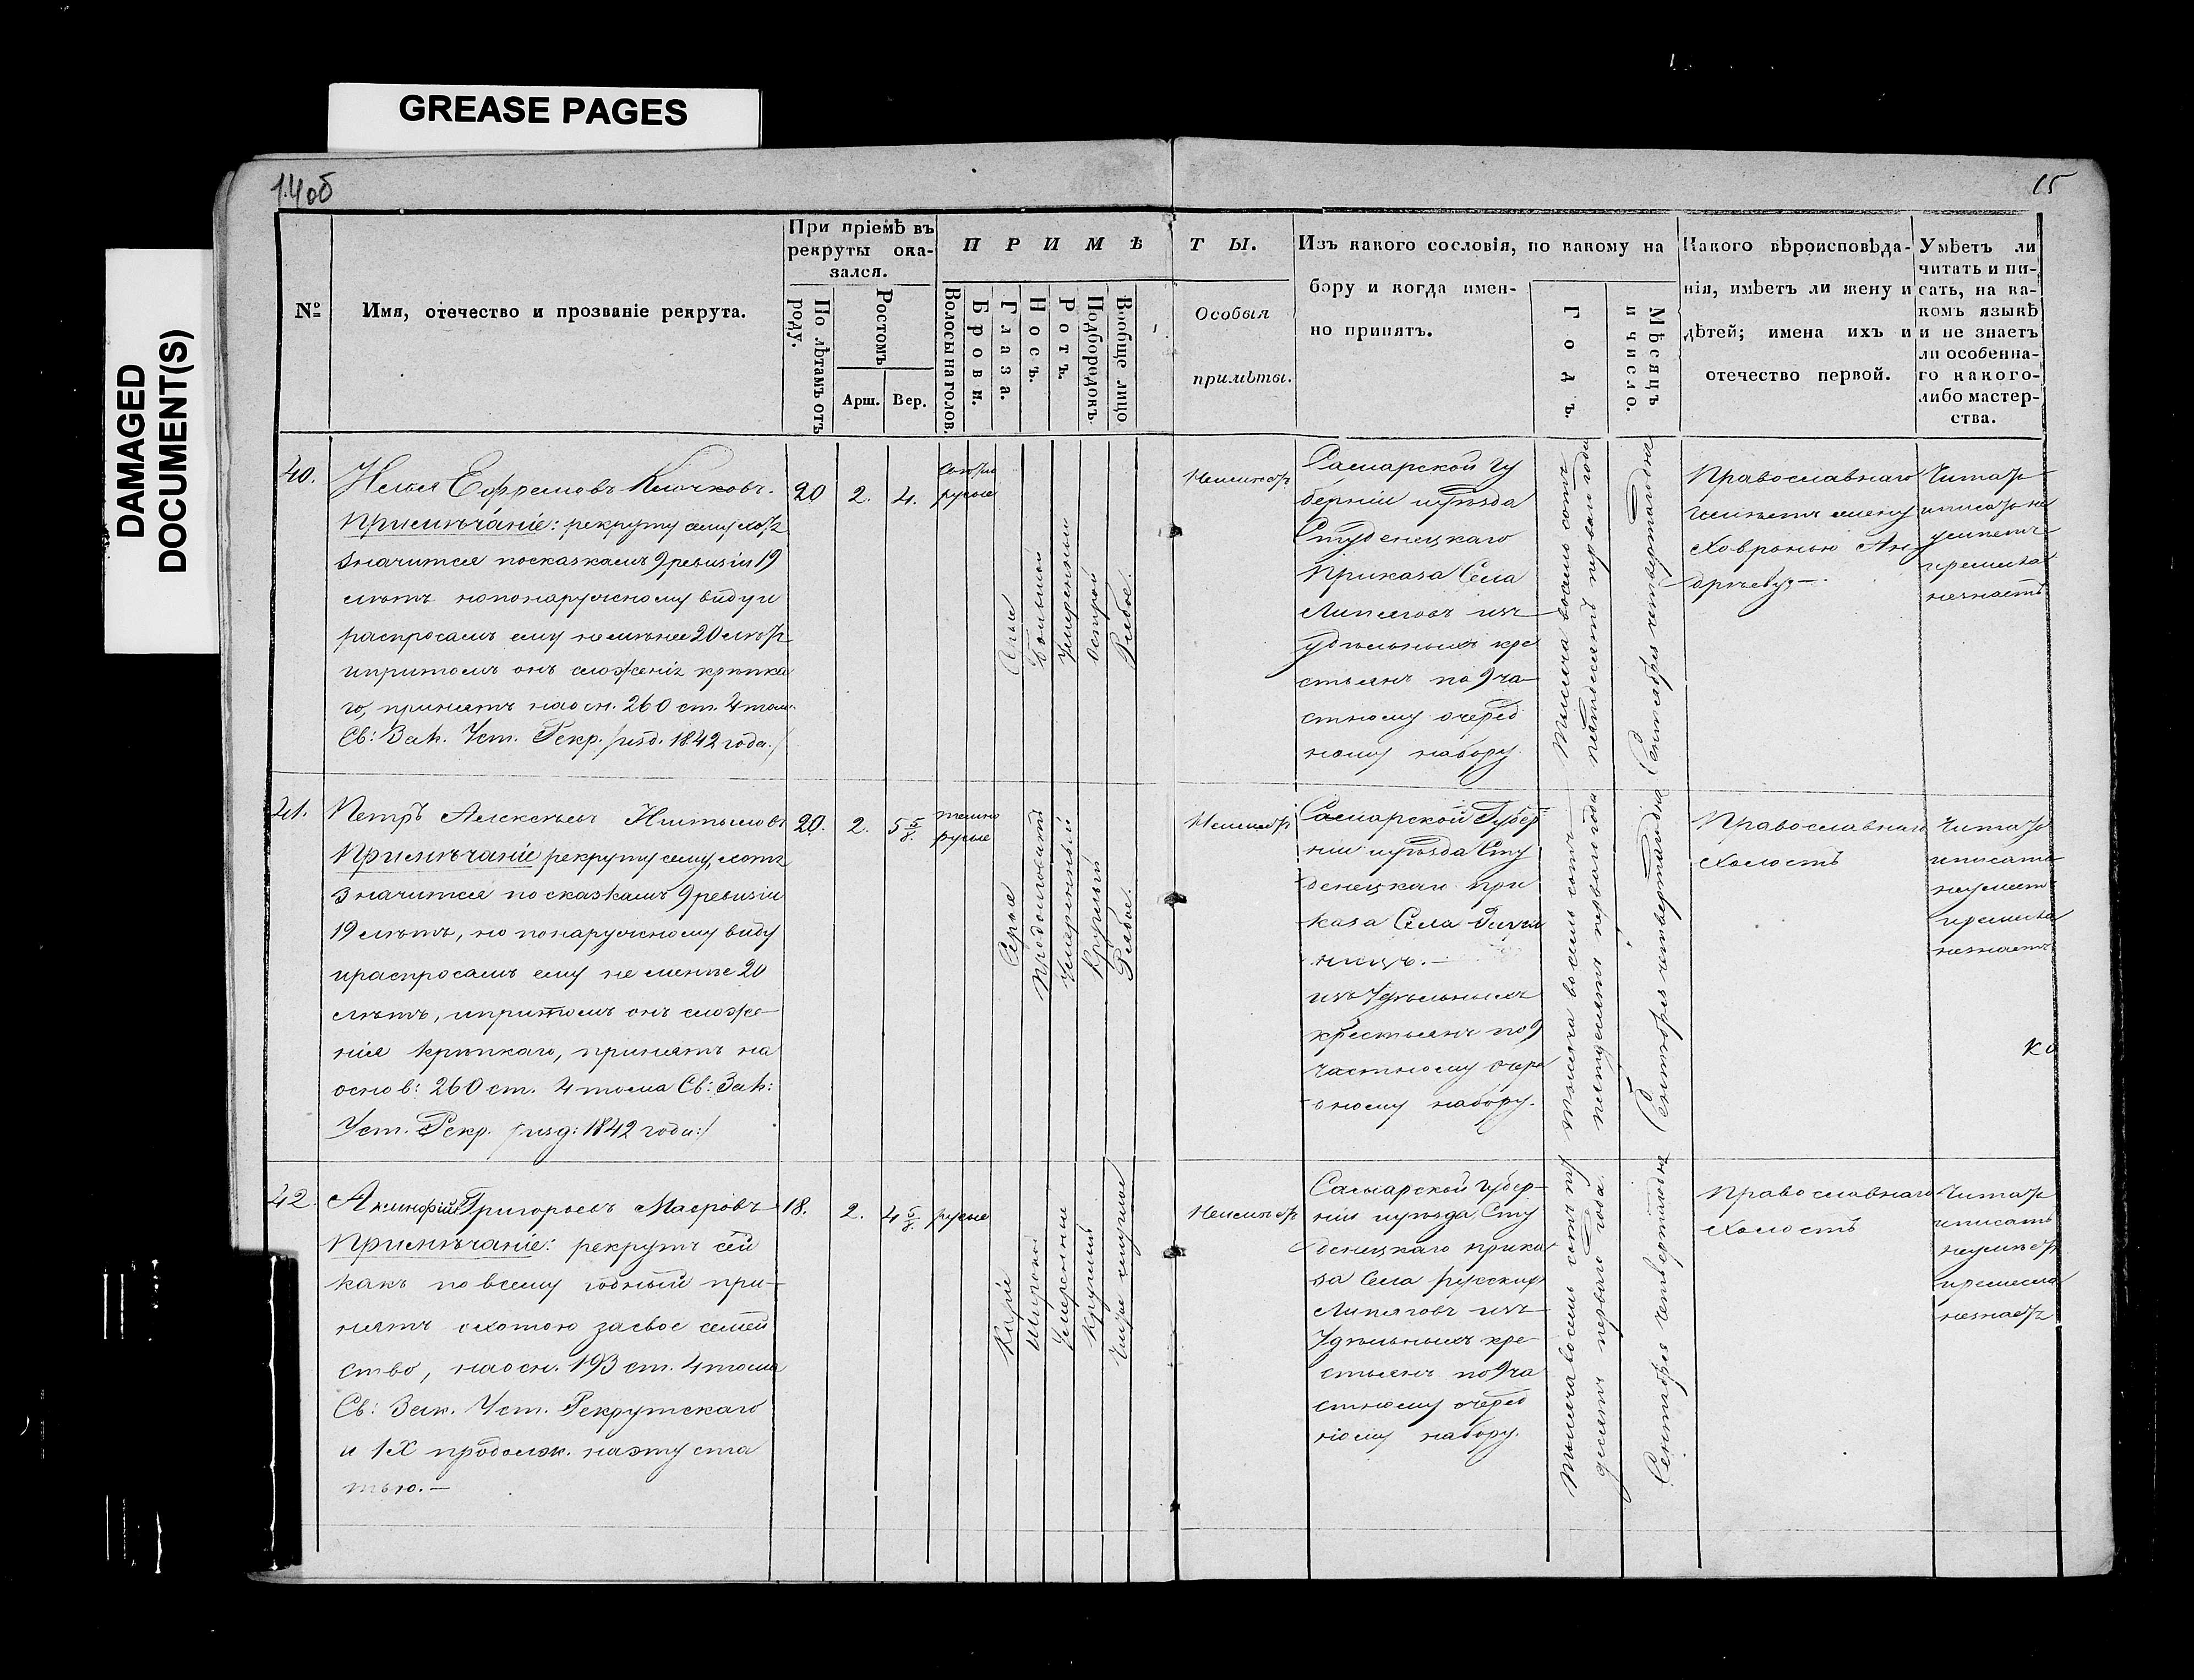 GREASE PAGES
DAMAGED
DOCUMENT(S)
14об
15
№
Имя, отечество и прозваніе рекрута.
При пріемѣ въ
рекруты ока-
зался.
По лѣтамъ отъ
роду.
Ростомъ
Арш.
Вер.
ПРИМѢ
ТЫ.
Волосы на голов.
Брови.
Глаза.
Носъ.
Ротъ.
Подбородокъ.
Вообще лицо
Особыя
примѣты.
Изъ какого сословія, по какому на
бору и когда имен-
но принятъ.
Годъ.
Мѣсяцъ
и число.
Какого вѣроисповѣда-
нія, имѣетъ ли жену и
дѣтей; имена ихъ и
отечество первой.
Умѣетъ ли
читать и пи-
сать, на ка-
комъ языкѣ
и не знаетъ
ли особенна-
го какого-
либо мастер-
ства.
40.
Ефремовъ Клочковъ.
Примѣчаніе: рекруту сему хотя
значится посказкамъ 9 ревизіи 19
лѣтъ нопонаружному виду и
распросамъ ему не менѣе 20 лѣтъ
ипритомъ онъ сложенія крѣпка
го, принятъ наосн. 260 ст. 4 тома
Св: Зак. Уст. Рекр. /изд. 1842 года:/
20
2.
4.
русые
Серые
Большой
Умеренный
Острой
Рябое.
Неимѣетъ
Самарской гу
берніи иуѣзда
Студенецкаго
Приказа Села
Липяговъ изъ
удѣльныхъ кре
стьянъ по 9 ча
стному очеред
ному набору.
Тысяча восемь сотъ
пятьдесятъ перваго года
Сентября четвертагодня
Православнаго
имѣетъ жену
Ховронью Ан-
дрѣеву.—
Читать
иписать не
умѣетъ
иремесла
незнаетъ
41.
Петръ Алексѣевъ
Примѣчаніе рекруту сему хотя
значится по сказкамъ 9 ревизіи
19 лѣтъ, но понаружному виду
ираспросамъ ему не менѣе 20
лѣтъ, ипритомъ онъ сложе-
нія крѣпкаго, принятъ на
основ: 260 ст. 4 тома Св: Зак:
Уст. Рекр. /изд: 1842 года:/
20.
2.
5 5/8.
темно
русые
Серые
Продолговатъ
Умеренный
Круглый
Рябое.
Неимѣетъ
Самарской Губер
ніи иуѣзда Сту
денецкаго при
каза Села
изъ Удѣльныхъ
крестьянъ по 9
частному очере
дному набору.
Тысяча восемь сотъ
пятьдесятъ перваго года
Сентября четвертагодня
Православнаго
холостъ
Читать
иписать
неумѣетъ
иремесла
незнаетъ
42.
Акинфій Григорьевъ Маеровъ
Примѣчаніе: рекрутъ сей
какъ по всему годный при-
нятъ охотою засвое семей
ство, наосн. 193 ст. 4 тома
Св: Зак. Уст. Рекрутскаго
и IX продолж. наэту ста
тью.—
18.
2.
4 5/8.
русые
Каріе
Широкой
Умеренные
Круглый
Чистое смуглое
Неимѣетъ
Самарской губер-
ніи иуѣзда, Сту
денецкаго прика
за Села русскихъ
Липяговъ изъ
Удѣльныхъ кре-
стьянъ по 9 ча
стному очеред
ному набору.
Тысяча восемь сотъ пять
десятъ перваго года.
Сентября четвертагодня
Православнаго
холостъ
Читать
иписать
неумѣетъ
иремесла
незнаетъ